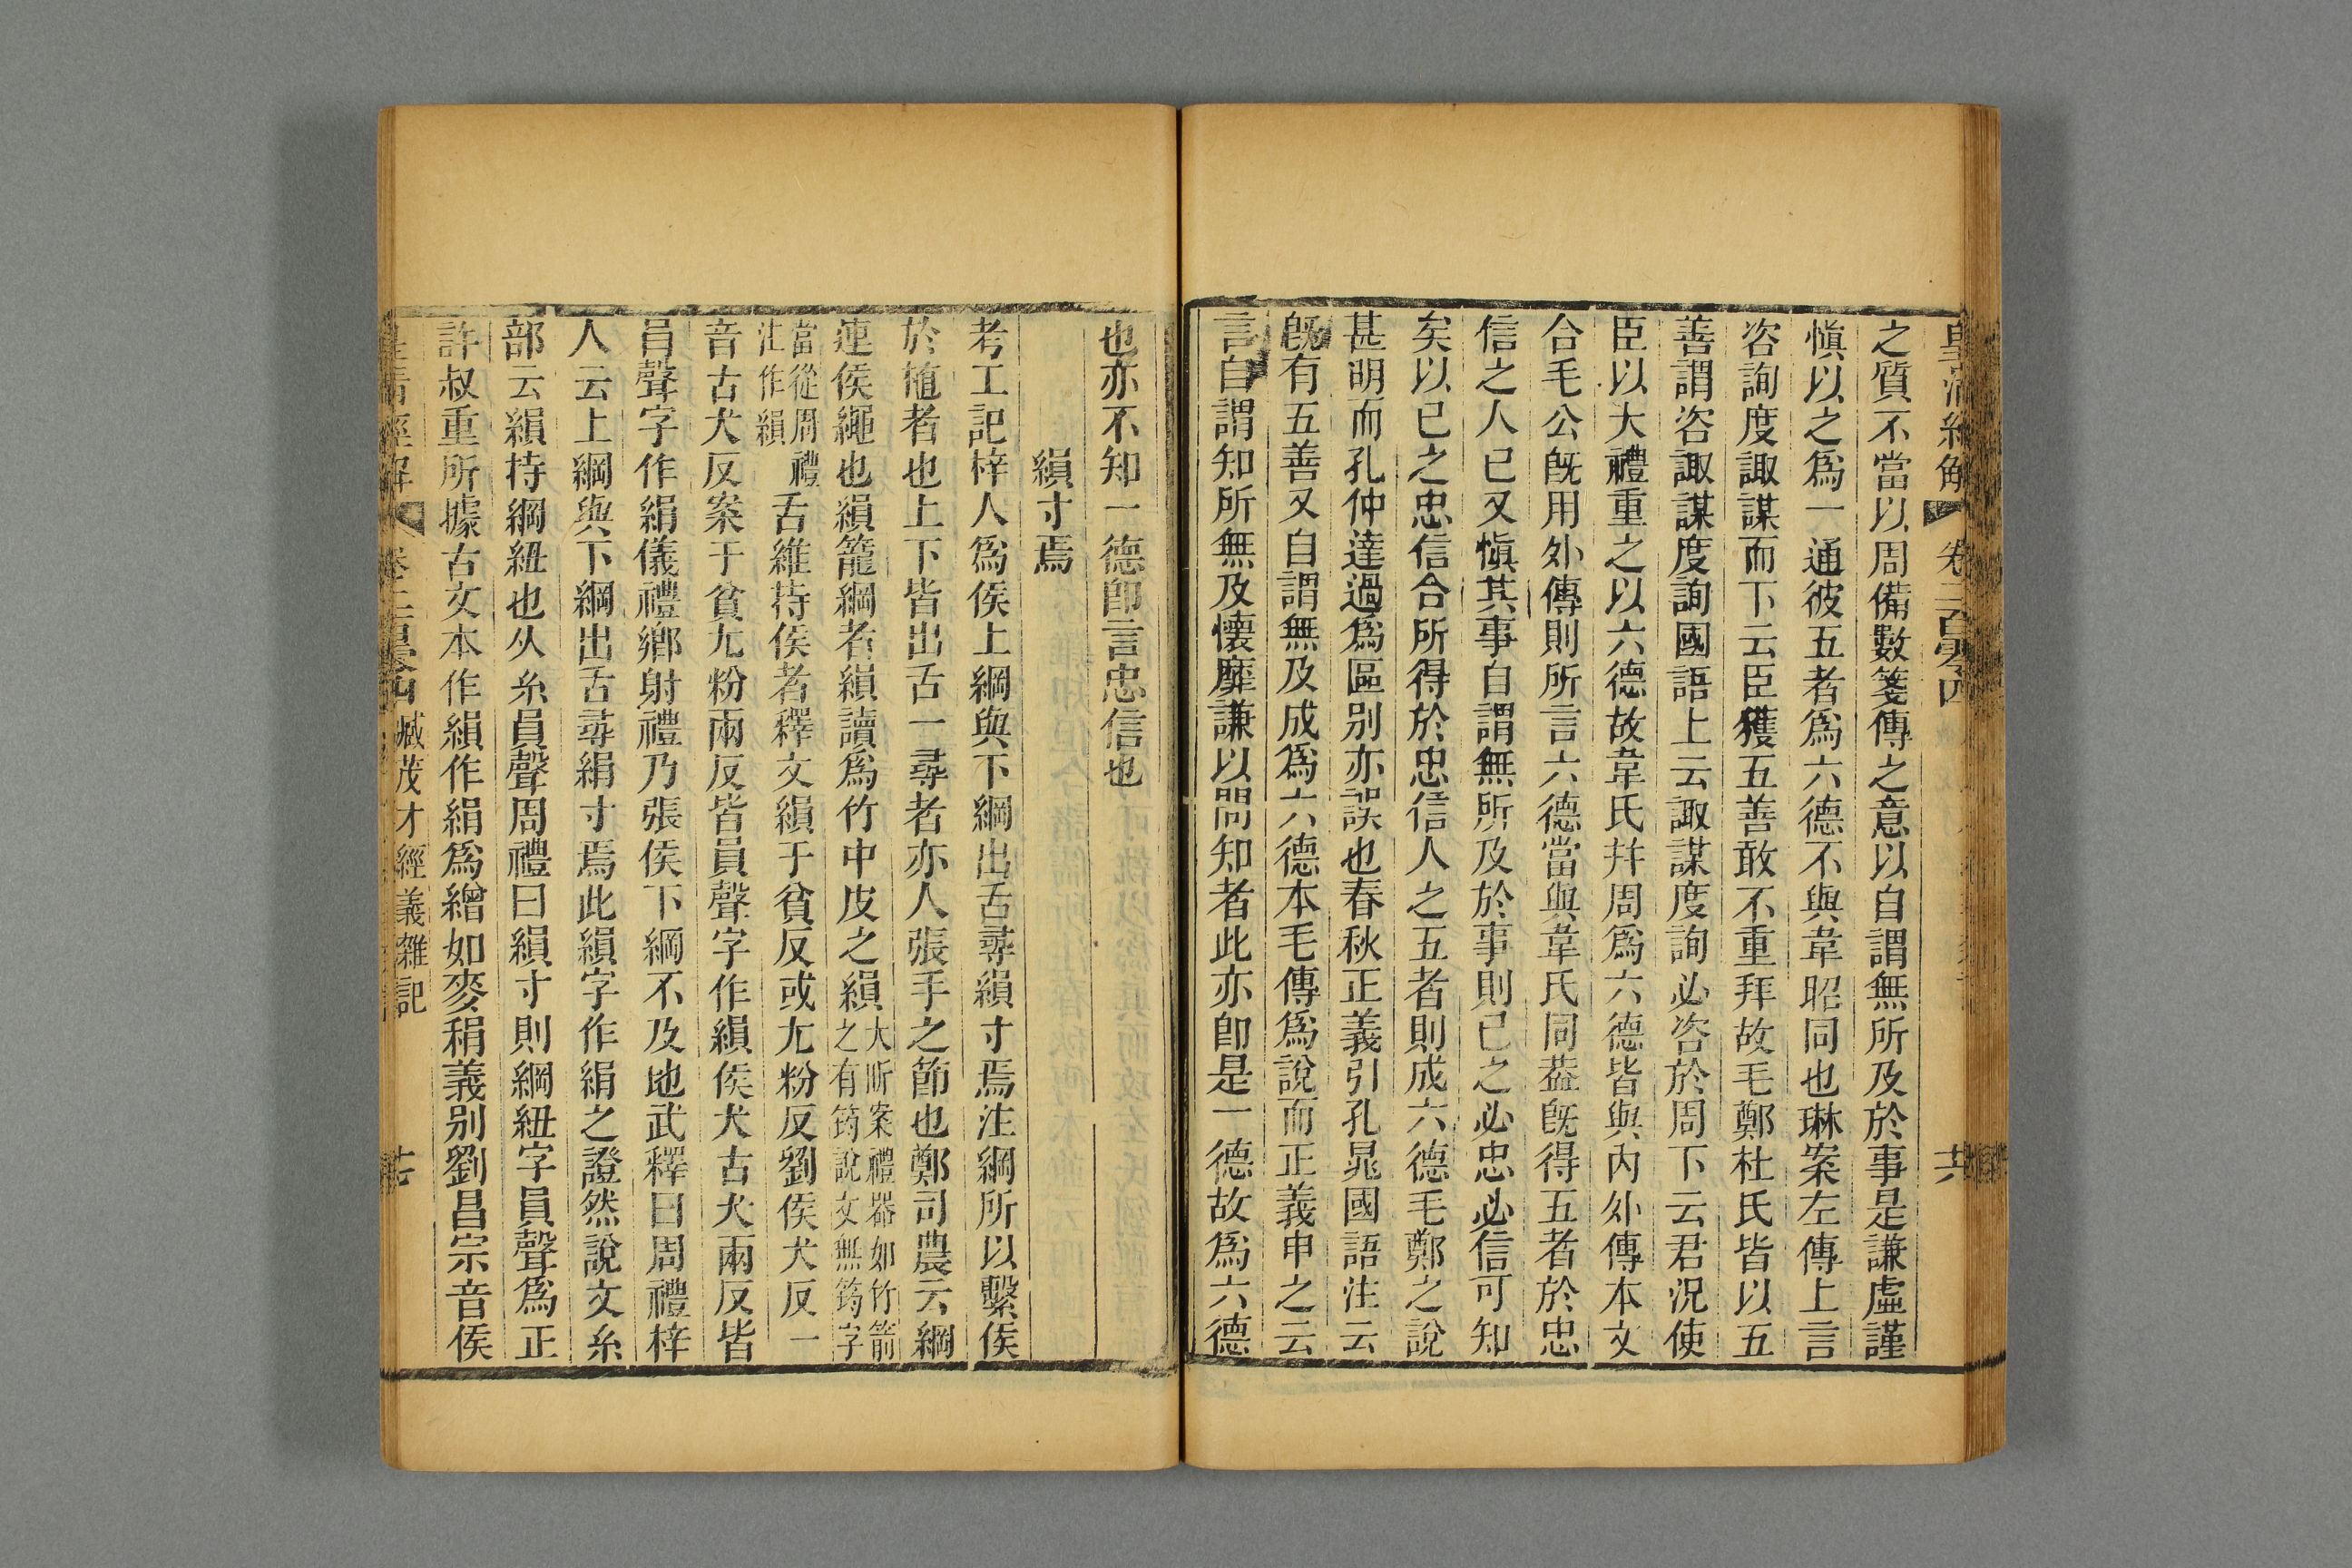 之質不當以周備數箋傳之意以自謂無所及於事是謙虛謹
愼以之爲一通彼五者爲六德不與韋昭同也琳案左傳上言
咨詢度諏謀而下云臣獲五善敢不重拜故毛鄭杜氏皆以五
善謂咨諏謀度詢國語上云諏謀度詢必咨於周下云君況使
臣以大禮重之以六德故韋氏幷周爲六德皆與內外傳本文
合毛公旣用外傳則所言六德當與韋氏同葢旣得五者於忠
信之人已又愼其事自謂無所及於事則已之必忠必信可知
矣以已之忠信合所得於忠信人之五者則成六德毛鄭之說
甚明而孔仲達過爲區别亦誤也春秋正義引孔晁國語注云
旣有五善又自謂無及成爲六德本毛傳爲說而正義申之云
言自謂知所無及懷靡謙以問知者此亦卽是一德故爲六德
也亦不知一德卽言忠信也
縜寸焉
考工記梓人爲侯上綱與下綱出舌尋縜寸焉注綱所以繫侯
於植者也上下皆出舌一尋者亦人張手之節也鄭司農云綱
連侯繩也縜籠綱者縜讀爲竹中皮之縜大昕案禮器如竹箭
之有筠說文無筠字
當從周禮
注作縜
舌維持侯者釋文縜于貧反或尢粉反劉侯犬反一
音古犬反案于貧尢粉兩反皆員聲字作縜侯犬古犬兩反皆
肙聲字作絹儀禮鄉射禮乃張侯下綱不及地武釋曰周禮梓
人云上綱與下綱出舌尋絹寸焉此縜字作絹之證然說文糸
部云縜持綱紐也从糸員聲周禮曰縜寸則綱紐字員聲爲正
許叔重所據古文本作縜作絹爲繒如麥稍義别劉昌宗音侯
臧茂才經義雜記